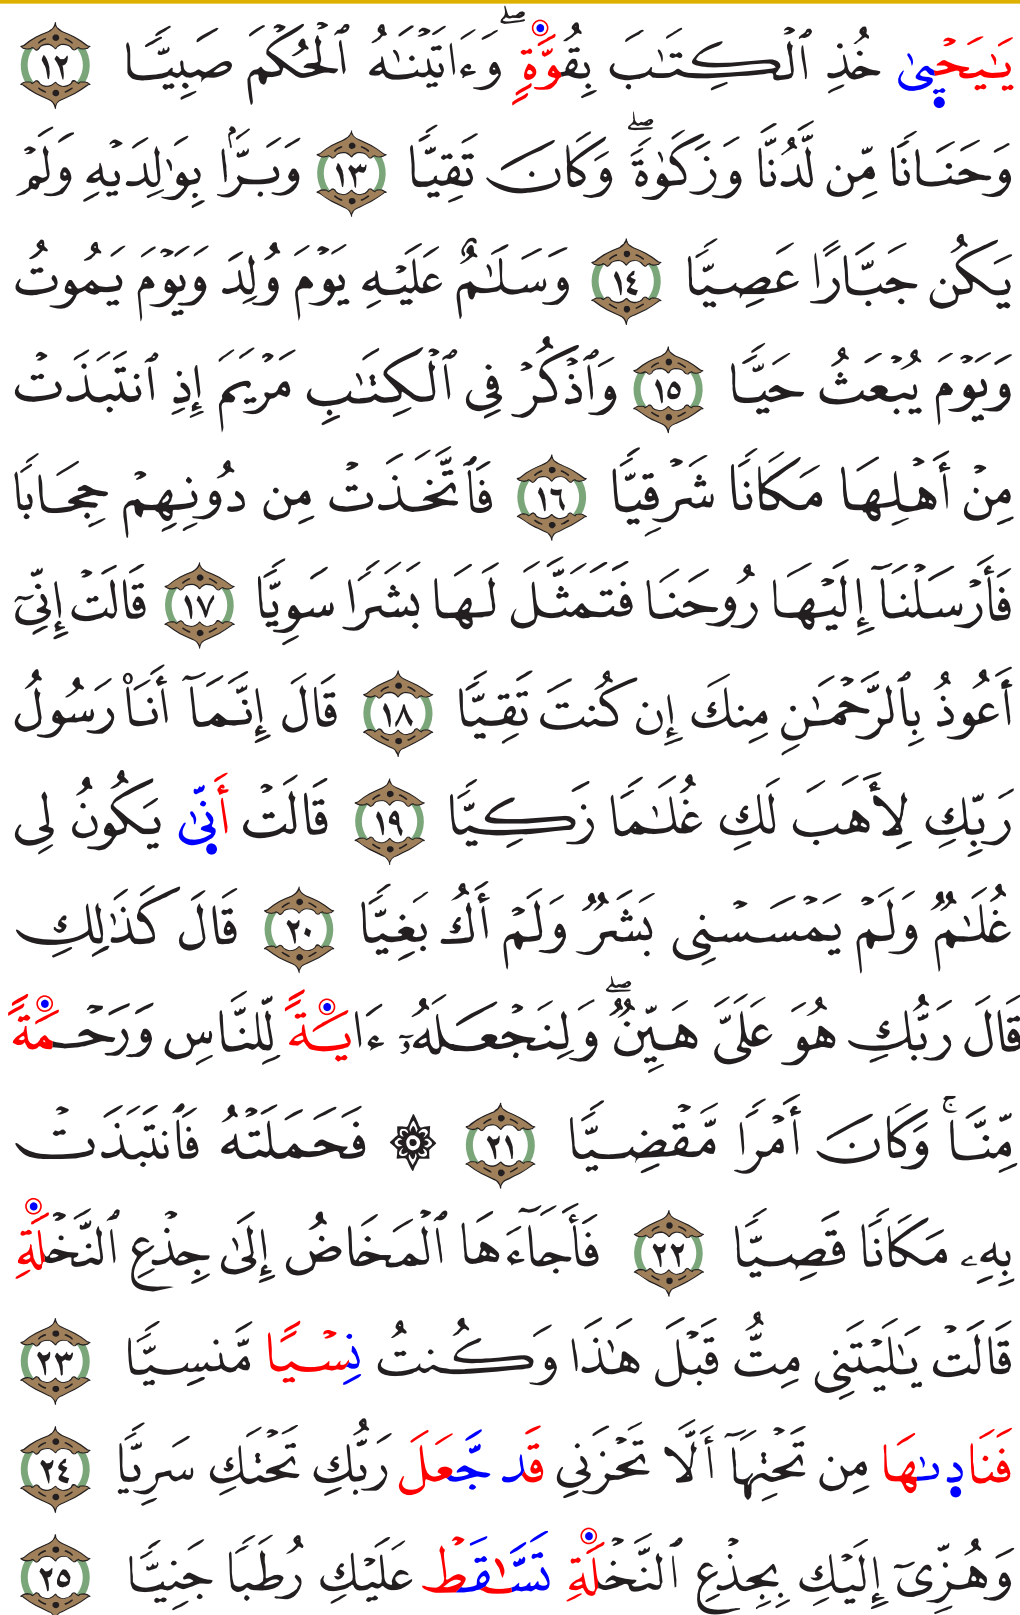 يَـٰيَحۡيىٰ خُذِ ٱلۡكِتَـٰبَ بِقُوَّةٍۖ وَءَاتَيۡنَـٰهُ ٱلۡحُكۡمَ صَبِيًّا ١٢
وَحَنَانًا مِّن لَّدُنَّا وَزَكَوٰةًۖ وَكَانَ تَقِيًّا ١٣ وَبَرًّۢا بِوَٰلِدَيۡهِ وَلَمۡ
يَكُن جَبَّارًا عَصِيًّا ١٤ وَسَلَـٰمٌ عَلَيۡهِ يَوۡمَ وُلِدَ وَيَوۡمَ يَمُوتُ
وَيَوۡمَ يُبۡعَثُ حَيًّا ١٥ وَٱذۡكُرۡ فِي ٱلۡكِتَـٰبِ مَرۡيَمَ إِذِ ٱنتَبَذَتۡ
مِنۡ أَهۡلِهَا مَكَانًا شَرۡقِيًّا ١٦ فَٱتَّخَذَتۡ مِن دُونِهِمۡ حِجَابًا
فَأَرۡسَلۡنَآ إِلَيۡهَا رُوحَنَا فَتَمَثَّلَ لَهَا بَشَرًا سَوِيًّا ١٧ قَالَتۡ إِنِّيٓ
أَعُوذُ بِٱلرَّحۡمَـٰنِ مِنكَ إِن كُنتَ تَقِيًّا ١٨ قَالَ إِنَّمَآ أَنَا۠ رَسُولُ
رَبِّكِ لِأَهَبَ لَكِ غُلَـٰمًا زَكِيًّا ١٩ قَالَتۡ أَنِّىٰ يَكُونُ لِي
غُلَـٰمٌ وَلَمۡ يَمۡسَسۡنِي بَشَرٌ وَلَمۡ أَكُ بَغِيًّا ٢٠ قَالَ كَذَٰلِكِ
قَالَ رَبُّكِ هُوَ عَلَيَّ هَيِّنٌۖ وَلِنَجۡعَلَهُۥٓ ءَايَةً لِّلنَّاسِ وَرَحۡمَةً
مِّنَّاۚ وَكَانَ أَمۡرًا مَّقۡضِيًّا ٢١ ۞ فَحَمَلَتۡهُ فَٱنتَبَذَتۡ
بِهِۦ مَكَانًا قَصِيًّا ٢٢ فَأَجَآءَهَا ٱلۡمَخَاضُ إِلَىٰ جِذۡعِ ٱلنَّخۡلَةِ
قَالَتۡ يَـٰلَيۡتَنِي مِتُّ قَبۡلَ هَـٰذَا وَكُنتُ نِسۡيًا مَّنسِيًّا ٢٣
فَنَادِىٰهَا مِن تَحۡتِهَآ أَلَّا تَحۡزَنِي قَد جَّعَلَ رَبُّكِ تَحۡتَكِ سَرِيًّا ٢٤
وَهُزِّيٓ إِلَيۡكِ بِجِذۡعِ ٱلنَّخۡلَةِ تَسَّـٰقَطۡ عَلَيۡكِ رُطَبًا جَنِيًّا ٢٥